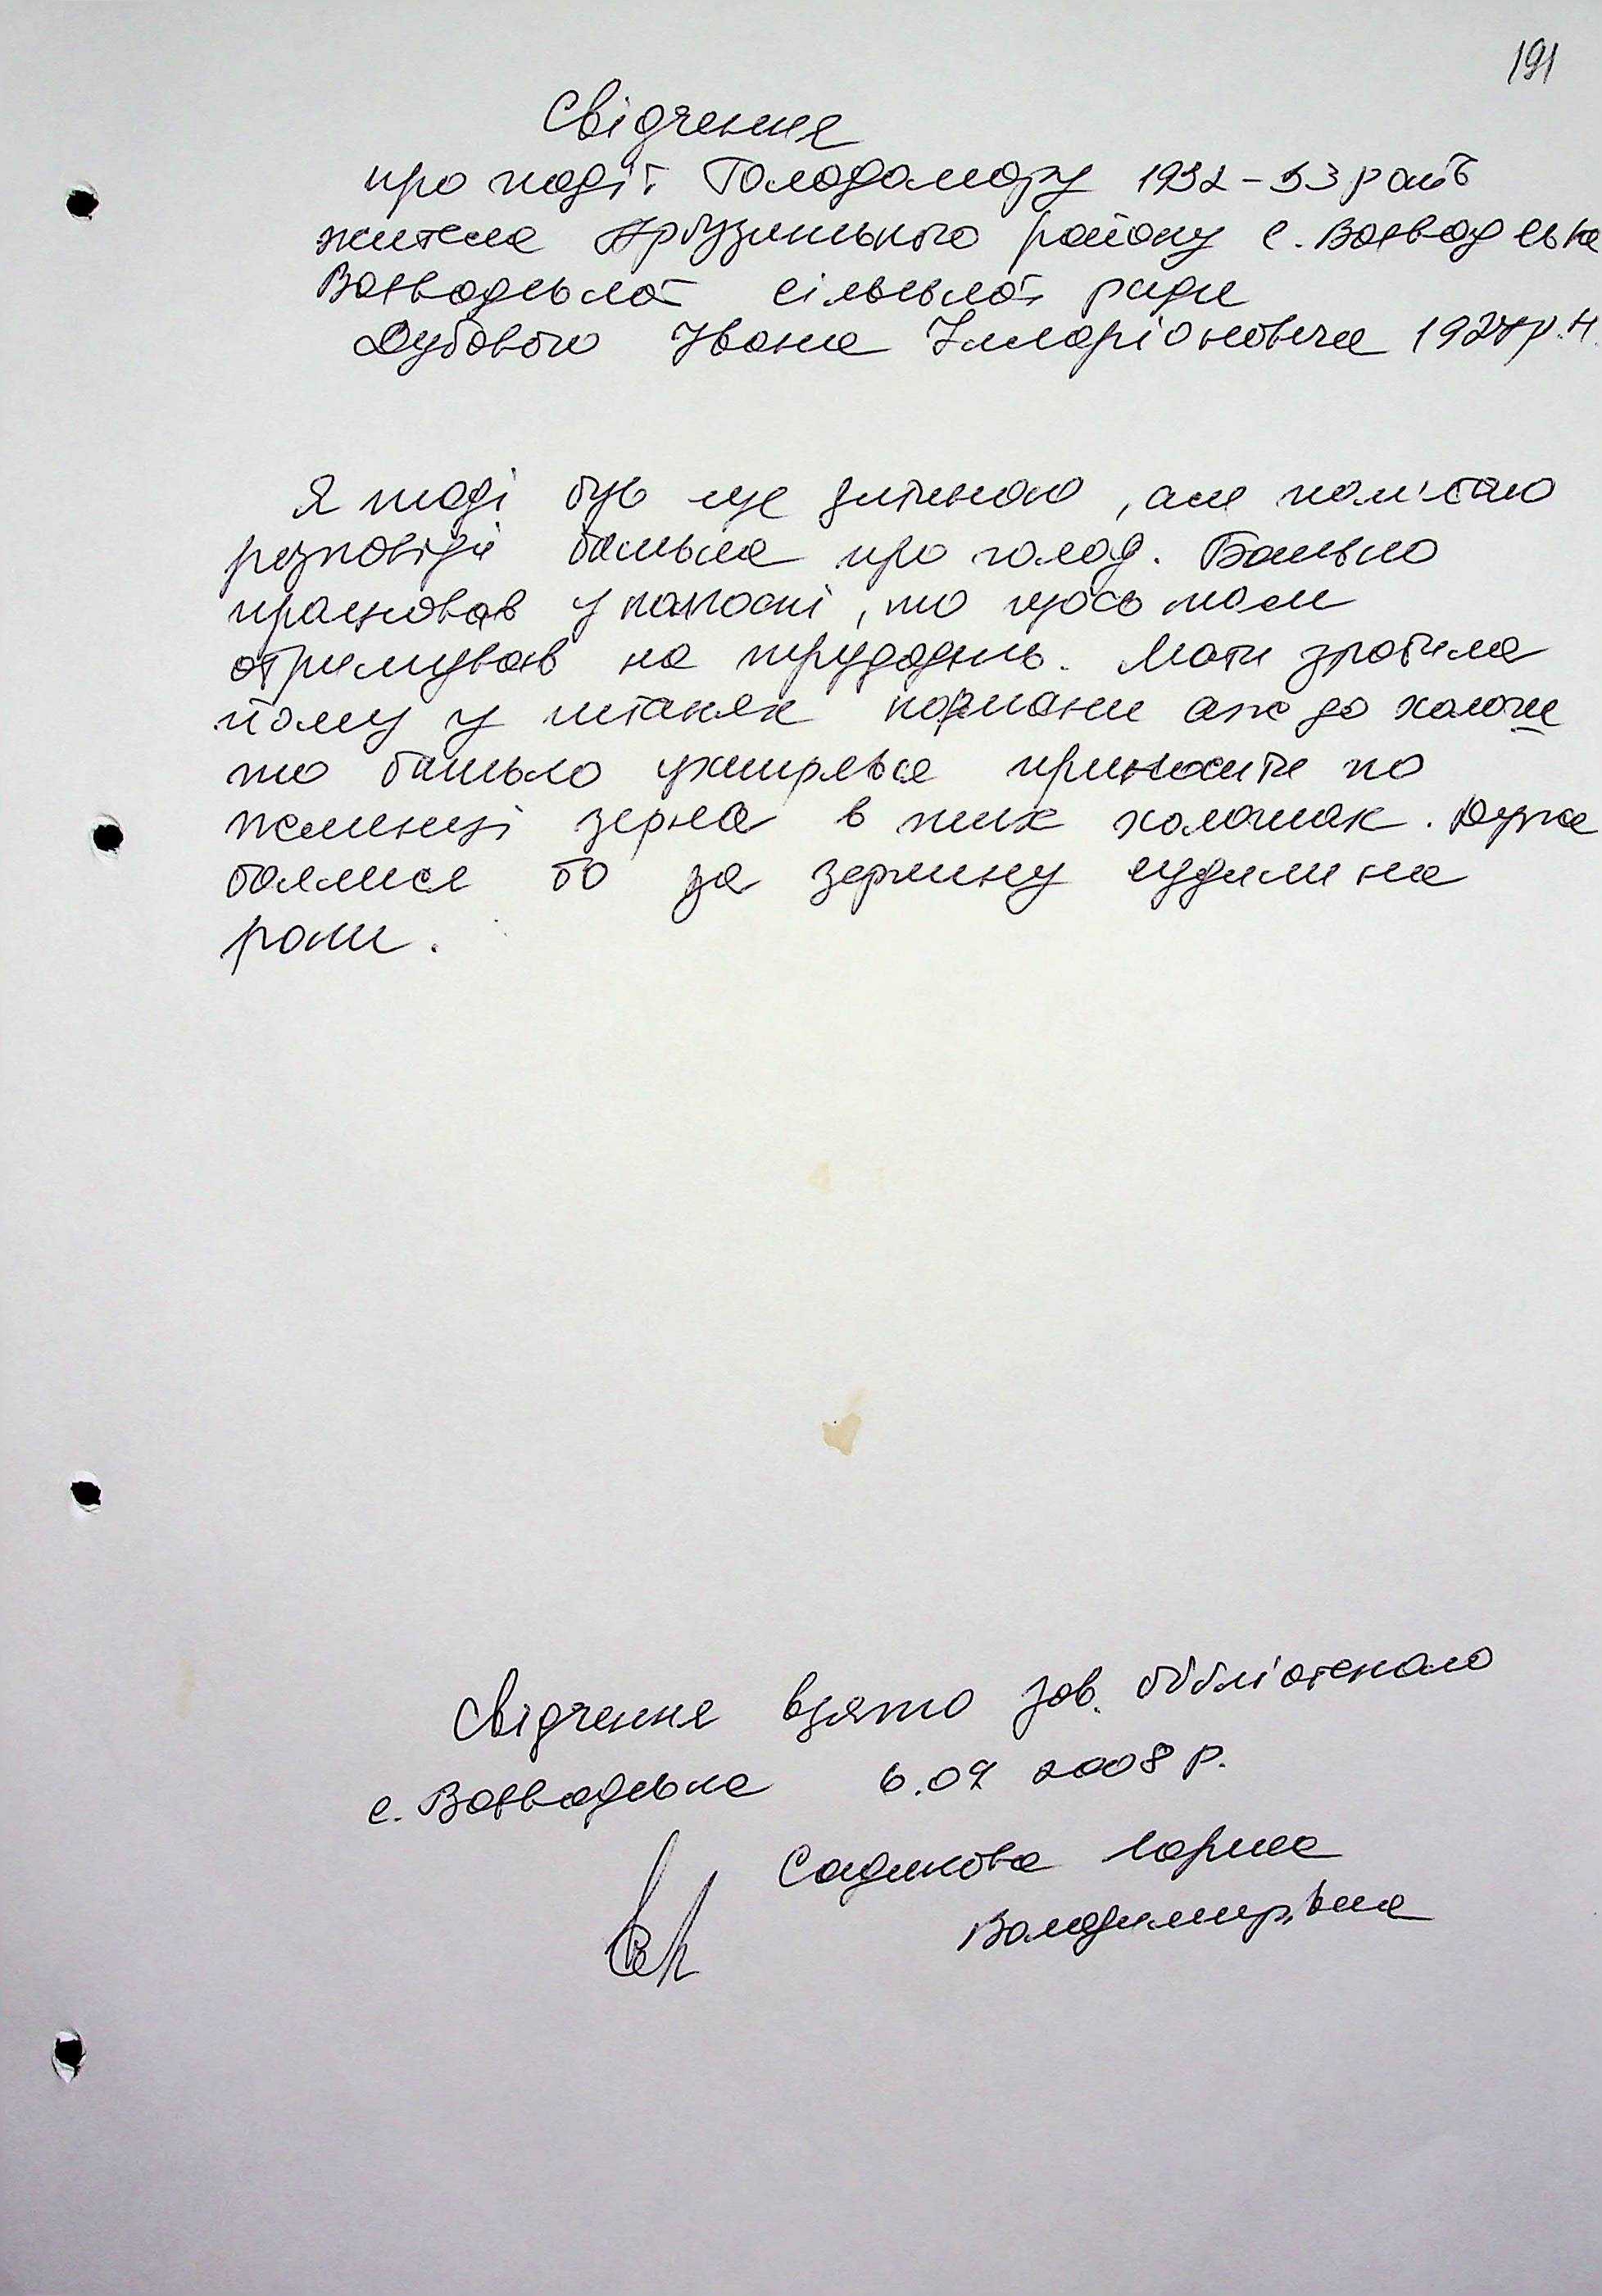 191
Свідчення
про події Голодомору 1932-33 років
жителя Арбузинського району с. Воєводське
Воєводської сільської ради
Дубового Івана Іларіоновича 1927 р.н.
Я тоді був ще дитиною, але пам'ятаю
розповіді батька про голод. Батько
працював у колгоспі, то щось там
отримував на трудодень. Мати зробила
йому у штанях кармани аж до холош
то батько ухитрявся приносити по
жменці зерна в тих холошах. Дуже
боялися бо за зернину судили на
роки.
Свідчення взято зав. бібліотекою
с. Воєводське 6.09 2008 р.
Садикова Лариса
Володимирівна